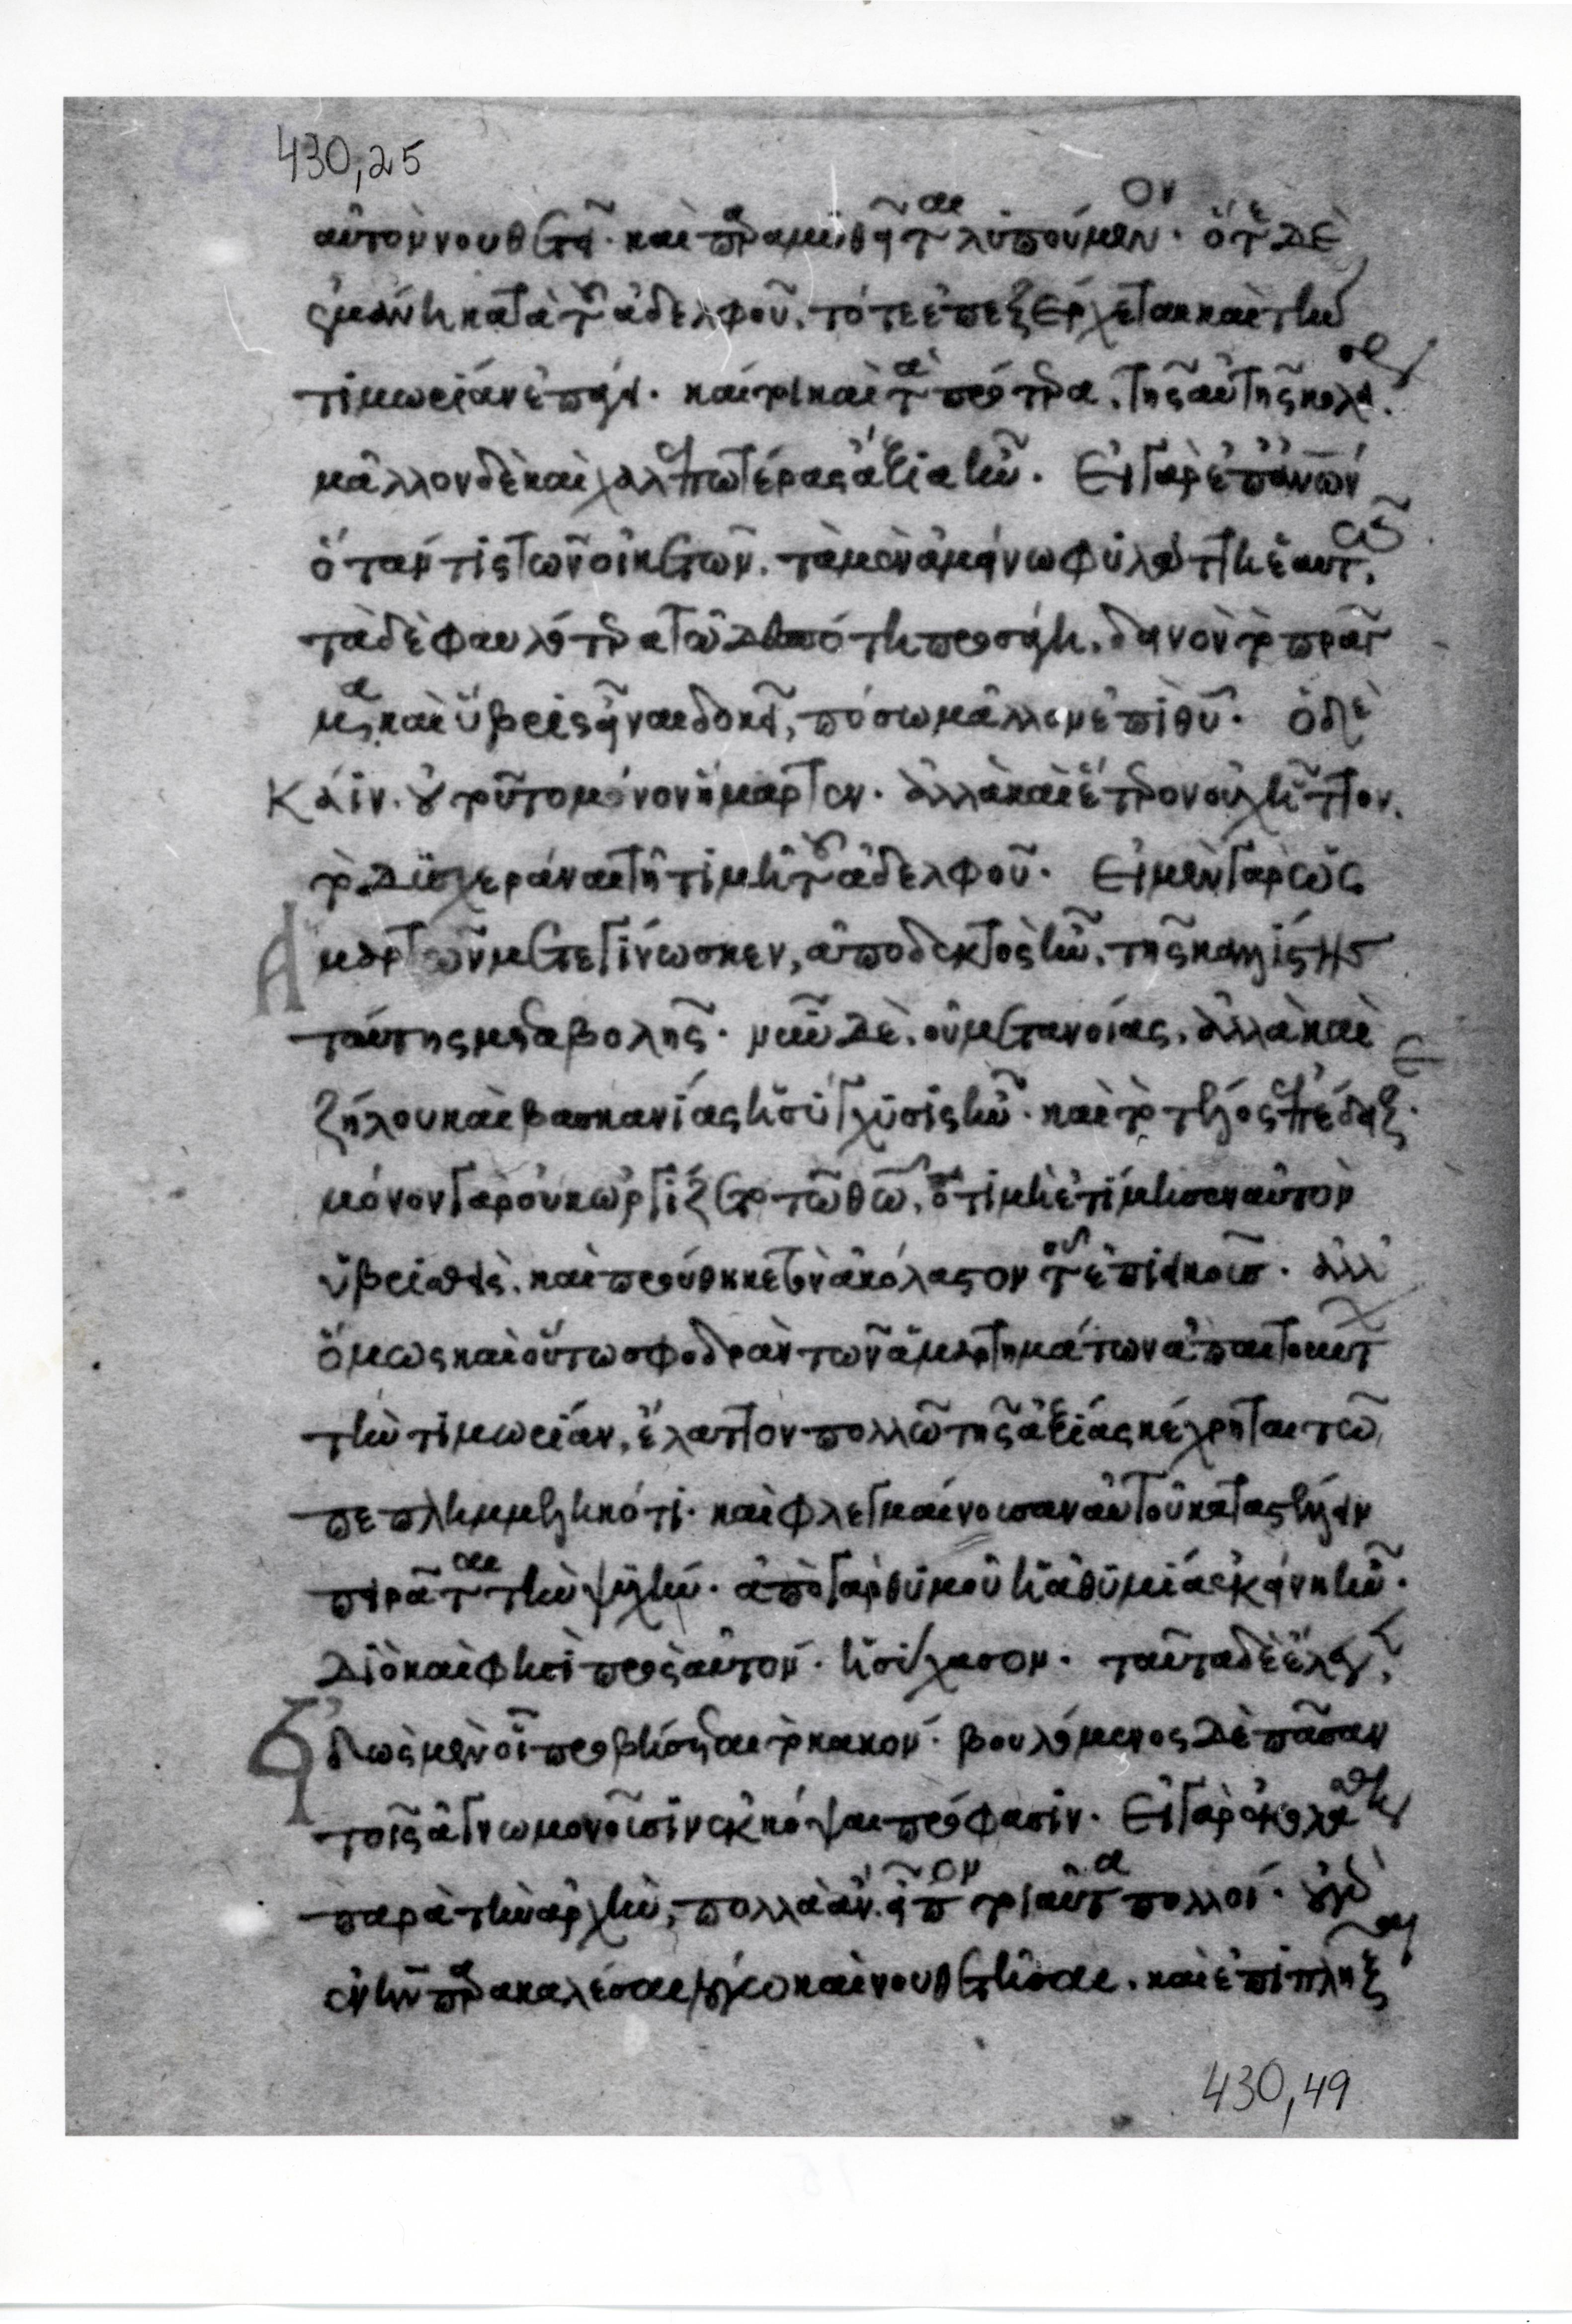 430,25
αὐτὸν νουθετεῖ· καὶ παραμυθεῖται λυπούμενον· ὅτε δὲ
ἐμάνη κατὰ τοῦ ἀδελφοῦ, τότε ἐπεξέρχεται καὶ τὴν
τιμωρίαν ἐπάγει· καίτοι καὶ τὰ πρότερα, τῆς αὐτῆς κολάσεως,
μᾶλλον δὲ καὶ χαλεπωτέρας ἄξια ἦν· Εἰ γὰρ ἐπ' ἀνθρώπων
ὅταν τις τῶν οἰκετῶν, τὰ μὲν ἀμείνω φυλάττῃ ἑαυτῷ,
τὰ δὲ φαυλότερα τῷ δεσπότῃ προσάγῃ, δεινὸν τὸ πρᾶγ
μα καὶ ὕβρις εἶναι δοκεῖ, πόσῳ μᾶλλον ἐπὶ θεοῦ· ὁ δὲ
Κάϊν· οὐ τοῦτο μόνον ἥμαρτεν· ἀλλὰ καὶ ἕτερον οὐχ ἧττον,
τὸ δυσχεράναι τῇ τιμῇ τοῦ ἀδελφοῦ· Εἰ μὲν γὰρ ὡς
ἁμαρτὼν μετεγίνωσκεν, ἀποδεκτὸς ἦν, τῆς καλλίστης
ταύτης μεταβολῆς· νῦν δὲ, οὐ μετανοίας, ἀλλὰ καὶ
ζήλου καὶ βασκανίας ἡ σύγχυσις ἦν· καὶ τὸ τέλος ἀπέδειξε·
μόνον γὰρ οὐκ ὠργίζετο τῷ θεῷ, ὅτι μὴ ἐτίμησεν αὐτὸν
ὑβρισθείς, καὶ προύθηκε τὸν ἀκόλαστον τοῦ ἐπιεικοῦς· ἀλλ'
ὅμως καὶ οὕτω σφοδρὰν τῶν ἁμαρτημάτων ἀπαιτούντων
τὴν τιμωρίαν, ἔλαττον πολλῷ τῆς ἀξίας κέχρηται τῷ
πεπλημμεληκότι· καὶ φλεγμαίνουσαν αὐτοῦ καταστέλλειν
πειρᾶται τὴν ψυχήν· ἀπὸ γὰρ θυμοῦ ἡ ἀθυμία ἐκείνη ἦν·
Διὸ καὶ φησὶ πρὸς αὐτόν· ἡσύχασον· ταῦτα δὲ ἔλεγεν,
εἰδὼς μὲν οἷ προβήσεται τὸ κακόν· βουλόμενος δὲ πᾶσαν
τοῖς ἀγνωμονοῦσιν ἐκκόψαι πρόφασιν· Εἰ γὰρ ἐκολάσθη
παρὰ τὴν ἀρχὴν, πολλὰ ἂν εἶπον τοιαῦτα πολλοί· οὐδὲ
ἐνῆν παρακαλέσαι λόγῳ καὶ νουθετῆσαι, καὶ ἐπιπλῆξαι
430,49